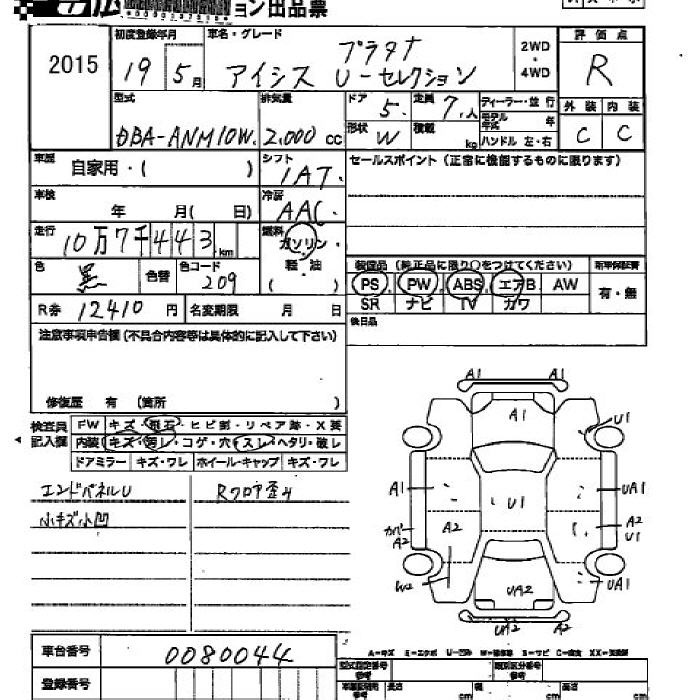 ョン出品票
2015 初度登録年月 車名・グレード 2WD・4WD 評価点
19 5月 プラタナ
アイシス U-セレクション R
型式 排気量 ドア 5. 定員 7.人 ディーラー・並行 外装 内装
DBA-ANM10W. 2.000 cc 形状 W 積載 kg モデル年式 年 ハンドル 左・右 C C
車歴 自家用・( ) シフト 1AT. セールスポイント (正常に機能するものに限ります)
車検 年 月( 日) 冷房 AAC.
走行 10万7千443km 燃料 ガソリン・軽・油 ( )
色 黒 色替 色コード 209 装備品 (純正品に限り○をつけてください) 新車保証書
PS. PW. ABS. エアB. AW 有・無
R券 12410 円 名変期限 月 日 SR ナビ TV カワ
注意事項申告欄 (不具合内容等は具体的に記入して下さい) 後日品
修復歴 有 (箇所 )
検査員 FW キズ・飛石・ヒビ割・リペア跡・X要
記入欄 内装 キズ・汚レ・コゲ・穴・スレ・ヘタリ・破レ
ドアミラー キズ・ワレ ホイール・キャップ キズ・ワレ
エンドパネルU Rフロア歪み
小キズ小凹
A1 A1
A1
U1
A1 U1 UA1
カバー A2 A2 A2 U1
W2 UA2 UA1
UA2 A2
A=キズ E=エクボ U=凹み
車台番号 0080044 型式指定番号 類別区分番号
登録番号 長さ cm 幅 cm 高さ cm